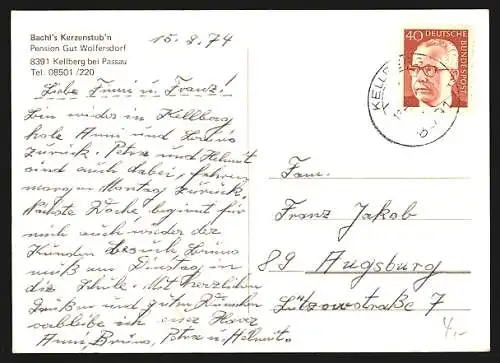 Bachl's Kerzenstub'n
Pension Gut Wolfersdorf
8391 Kellberg bei Passau
Tel. 08501 /220
15.9.74
40 DEUTSCHE BUNDESPOST
Liebe Finni u. Franz!
Bin wieder in Kellberg
hole Anni und Bruno
zurück. Petra und Helmut
sind auch dabei, fahren
morgen Montag zurück.
Nächste Woche beginnt für
mich auch wieder der
Kunden besuch Bruno
muß am Dienstag in
die Schule. Mit herzlichen
Grüßen und guten Wünschen
verbleibe ich euer Hans
Anni, Bruno, Petra u. Helmut.
Fam.
Franz Jakob
89 Augsburg
Lützowstraße 7
4,-